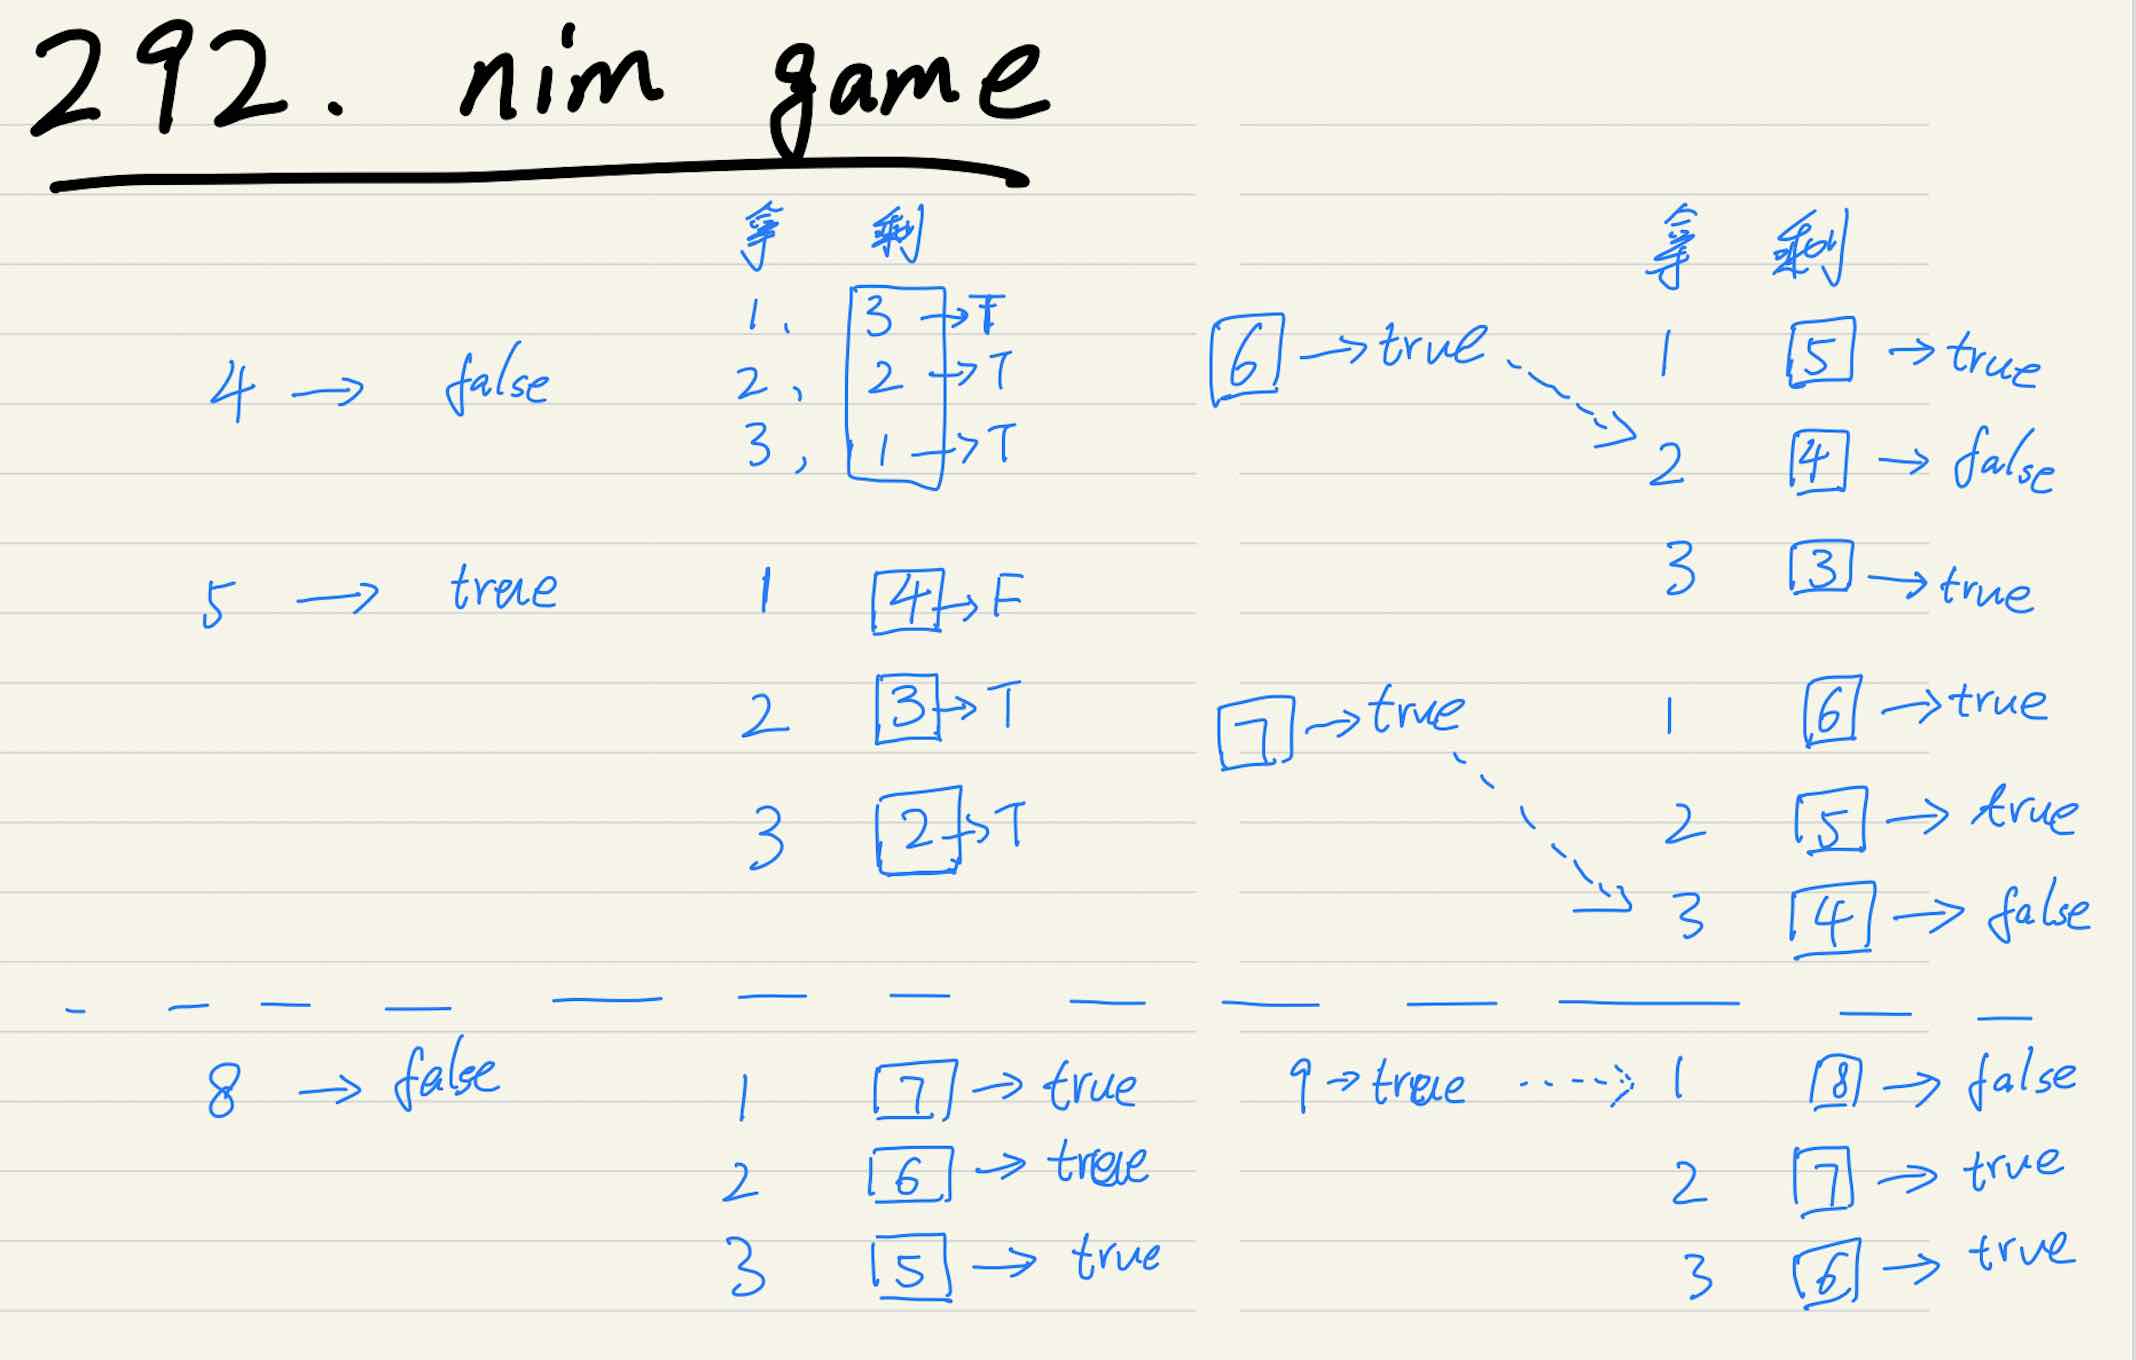 292. nim game
拿 剩
1, 3 → T
4 → false 2, 2 → T
3, 1 → T
5 → true 1 4 → F
2 3 → T
3 2 → T
拿 剩
6 → true 1 5 → true
2 4 → false
3 3 → true
7 → true 1 6 → true
2 5 → true
3 4 → false
8 → false 1 7 → true
2 6 → true
3 5 → true
9 → true 1 8 → false
2 7 → true
3 6 → true